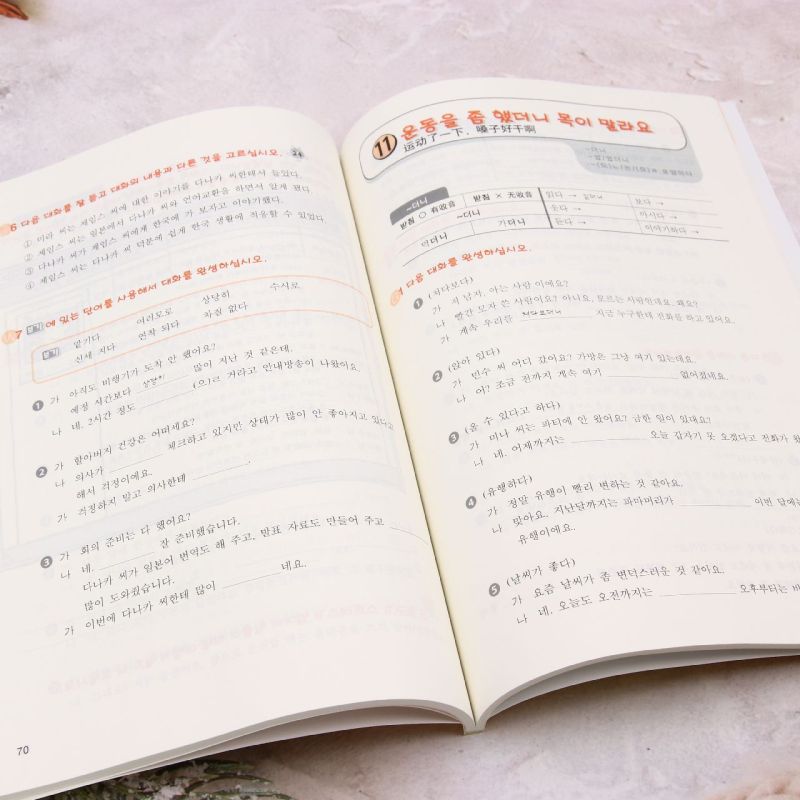 6 다음 대화를 잘 듣고 대화의 내용과 다른 것을 고르십시오. 24
① 미라 씨는 제임스 씨에 대한 이야기를 다나카 씨한테서 들었다.
② 제임스 씨는 일본에서 다나카 씨와 언어교환을 하면서 알게 됐다.
③ 다나카 씨가 제임스 씨에게 한국에 가 보자고 이야기했다.
④ 제임스 씨는 다나카 씨 덕분에 쉽게 한국 생활에 적응할 수 있었다.
7 보기 에 있는 단어를 사용해서 대화를 완성하십시오.
보기 맡기다 여러모로 상당히 수시로
신세 지다 연착 되다 차질 없다
❶ 가 아직도 비행기가 도착 안 했어요?
예정 시간보다 상당히 많이 지난 것 같은데.
나 네, 2시간 정도 (으)ㄹ 거라고 안내방송이 나왔어요.
❷ 가 할아버지 건강은 어떠세요?
나 의사가 체크하고 있지만 상태가 많이 안 좋아지고 있다고
해서 걱정이에요.
가 걱정하지 말고 의사한테 .
❸ 가 회의 준비는 다 했어요?
나 네, 잘 준비했습니다.
다나카 씨가 일본어 번역도 해 주고, 발표 자료도 만들어 주고
많이 도와줬습니다.
가 이번에 다나카 씨한테 많이 네요.
70
11 운동을 좀 했더니 목이 말라요
运动了一下，嗓子好干啊
-더니
-았/었더니
~더니
받침 ○ 有收音 받침 × 无收音
-더니
덕더니 가더니
읽다 → 읽더니 보다 →
웃다 → 마시다 →
듣다 → 이야기하다 →
1 다음 대화를 완성하십시오.
❶ (쳐다보다)
가 저 남자, 아는 사람이에요?
나 빨간 모자 쓴 사람이요? 아니요, 모르는 사람인데요. 왜요?
가 계속 우리를 쳐다보더니 지금 누구한테 전화를 하고 있어요.
❷ (앉아 있다)
가 민수 씨 어디 갔어요? 가방은 그냥 여기 있는데요.
나 어? 조금 전까지 계속 여기 없어졌네요.
❸ (올 수 있다고 하다)
가 미나 씨는 파티에 안 왔어요? 급한 일이 있대요?
나 네, 어제까지는 오늘 갑자기 못 오겠다고 전화가 왔
❹ (유행하다)
가 정말 유행이 빨리 변하는 것 같아요.
나 맞아요. 지난달까지는 파마머리가 이번 달에는
유행이에요.
❺ (날씨가 좋다)
가 요즘 날씨가 좀 변덕스러운 것 같아요.
나 네, 오늘도 오전까지는 오후부터는